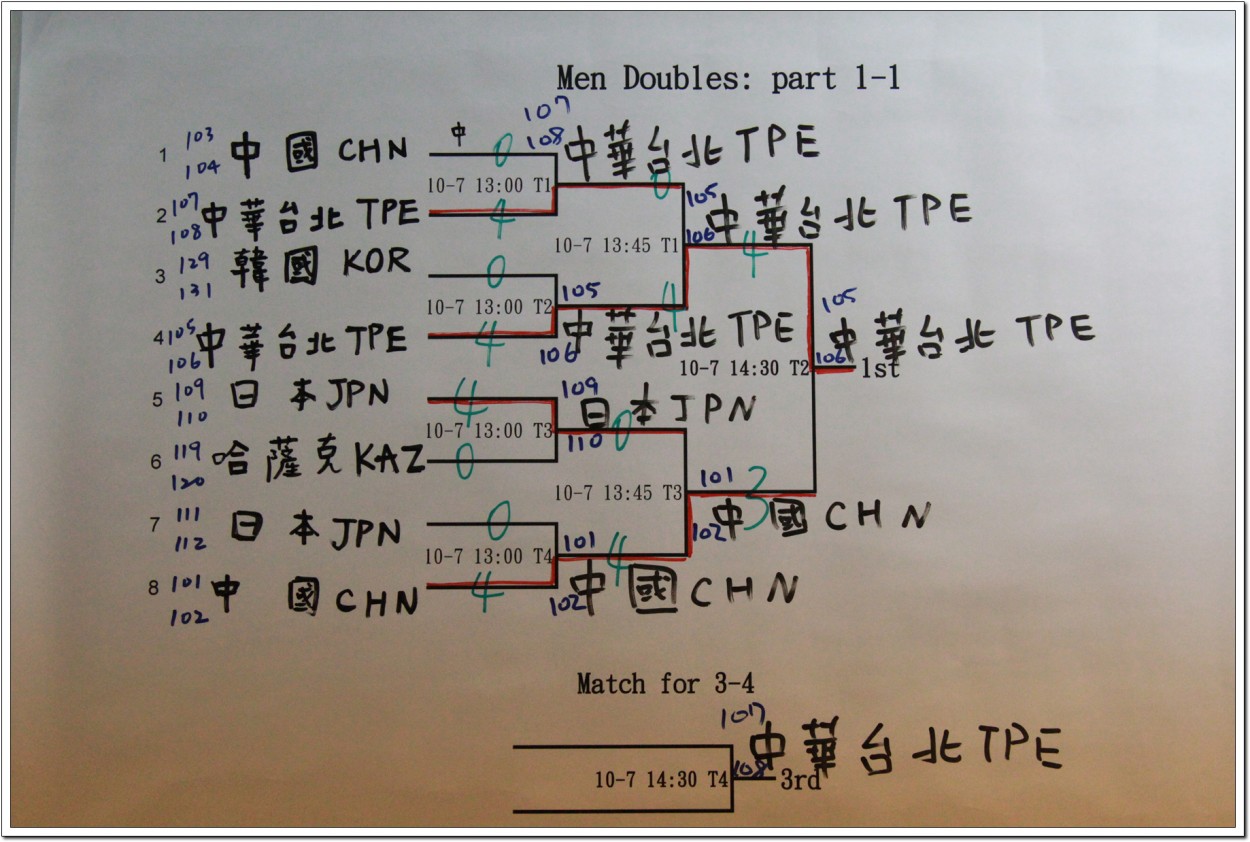 Men Doubles: part 1-1
107
108 中華台北 TPE
1 103 中國 CHN 中 0
104
10-7 13:00 T1
0
2 107 中華台北 TPE 4
108
105
106 中華台北 TPE
10-7 13:45 T1
4
3 129 韓國 KOR 0
131
10-7 13:00 T2
105
106 中華台北 TPE
4
4 105 中華台北 TPE 4
106
105
106 中華台北 TPE
10-7 14:30 T2
1st
5 109 日本 JPN 4
110
109
110 日本 JPN
0
10-7 13:00 T3
6 119 哈薩克 KAZ 0
120
10-7 13:45 T3
101
102 中國 CHN
3
7 111 日本 JPN 0
112
10-7 13:00 T4
101
102 中國 CHN
4
8 101 中國 CHN 4
102
Match for 3-4
107
108 中華台北 TPE
10-7 14:30 T4
3rd